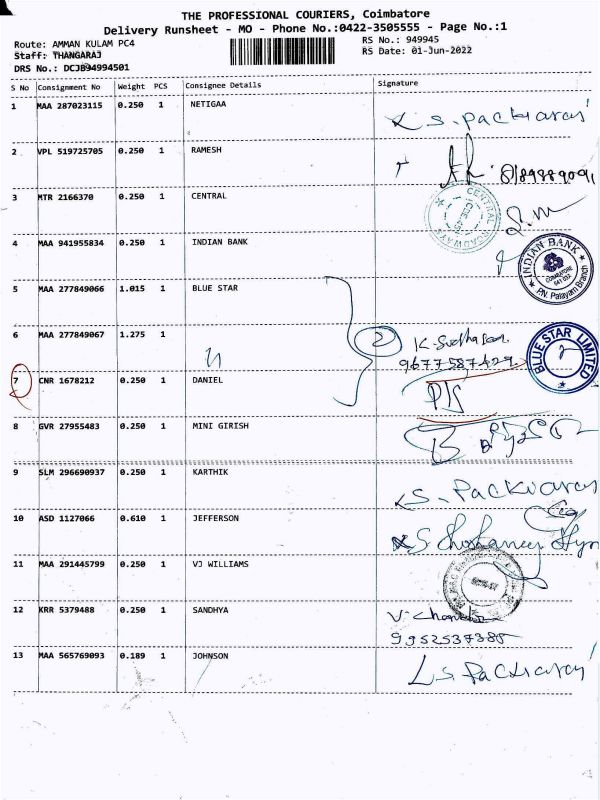 THE PROFESSIONAL COURIERS, Coimbatore
Delivery Runsheet - MO - Phone No.:0422-3505555 - Page No.:1
Route: AMMAN KULAM PC4
RS No.: 949945
Staff: THANGARAJ
RS Date: 01-Jun-2022
DRS No.: DCJB94994501
S No Consignment No Weight PCS Consignee Details Signature
1 MAA 287023115 0.250 1 NETIGAA
S. Packiaraj
2 VPL 519725705 0.250 1 RAMESH
3 MTR 2166370 0.250 1 CENTRAL
CENTRAL ROADWAYS
CBE-18
4 MAA 941955834 0.250 1 INDIAN BANK
INDIAN BANK
COIMBATORE
641 037
P.N. Palayam Branch
5 MAA 277849066 1.015 1 BLUE STAR
6 MAA 277849067 1.275 1
2 K. Sudhasan
9677587629
BLUE STAR LIMITED
2
7 CNR 1678212 0.250 1 DANIEL
8 GVR 27955483 0.250 1 MINI GIRISH
9 SLM 296690937 0.250 1 KARTHIK
S. Packiaraj
10 ASD 1127066 0.610 1 JEFFERSON
11 MAA 291445799 0.250 1 VJ WILLIAMS
12 KRR 5379488 0.250 1 SANDHYA
9952537385
13 MAA 565769093 0.189 1 JOHNSON
S. Packiaraj